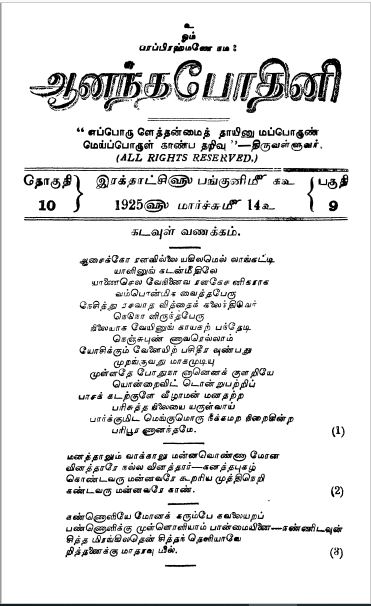 உ
ஓம்
பரப்பிரஹ்மணே நம:
ஆனந்தபோதினி
“எப்பொரு ளெத்தன்மைத் தாயினு மப்பொருண்
மெய்ப்பொருள் காண்ப தறிவு”—திருவள்ளுவர்.
(ALL RIGHTS RESERVED.)
தொகுதி 10
இரக்தாட்சிவூ பங்குனிமீ கூ
1925வூ மார்ச்சுமீ 14உ
பகுதி 9
கடவுள் வணக்கம்.
ஆசைக்கோ ரளவில்லை யகிலமெல் லாங்கட்டி
யாளினுங் கடன்மீதிலே
யாணைசெல வேநினைவ ரளகேச னிகராக
வம்பொன்மிக வைத்தபேரு
நேசித்து ரசவாத வித்தைக் கலைந்திடுவர்
நெடுநா ளிருந்தபேரு
நிலையாக வேயினுங் காயகற் பந்தேடி
நெஞ்சுபுண் ணாவரெல்லாம்
யோசிக்கும் வேளையிற் பசிதீர வுண்பது
முறங்குவது மாகமுடியு
முள்ளதே போதுநா னானெனக் குளறியே
யொன்றைவிட் டொன்றுபற்றிப்
பாசக் கடற்குளே வீழாமன் மனதற்ற
பரிசுத்த நிலையை யருள்வாய்
பார்க்குமிட மெங்குமொரு நீக்கமற நிறைகின்ற
பரிபூர ணானந்தமே. (1)
மனத்தாலும் வாக்காலு மன்னவொண்ணா மோன
வினத்தாரே நல்ல வினத்தார்—கனத்தபுகழ்
கொண்டவரு மன்னவரே கூறரிய முத்திநெறி
கண்டவரு மன்னவரே காண். (2)
கண்ணொளியே மோனக் கரும்பே கவலையறப்
பண்ணொளிக்கு முள்ளொளியாம் பான்மையினை—நண்ணிடவுன்
சித்த மிரங்கிலதென் சித்தந் தெளியாவே
றித்தனைக்கு மாதரவு மில். (3)